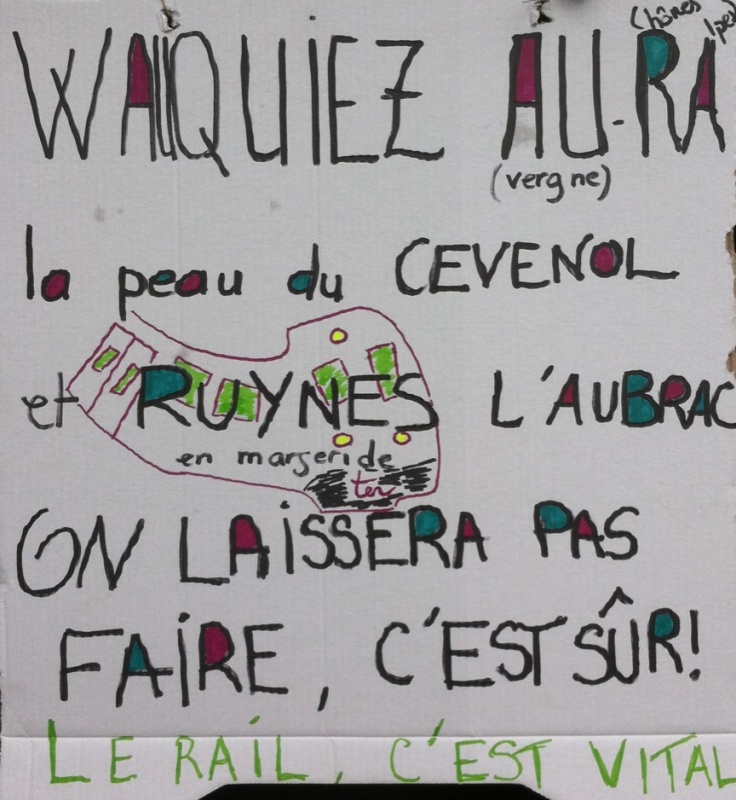 WAUQUIEZ AU-RA (hônes
(vergne) lpes)
la peau du CEVENOL
et RUYNES L'AUBRAC
en margeride
ter
ON LAISSERA PAS
FAIRE, C'EST SÛR!
LE RAIL, C'EST VITAL